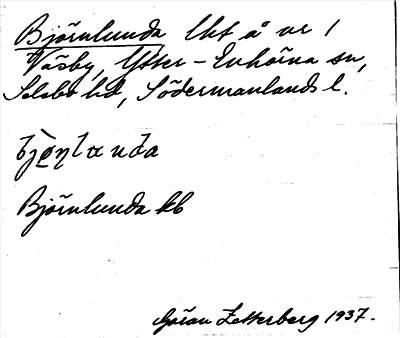 Björnlunda lht å nr 1
Väsby, Ytter-Enhörna sn,
Selebo hd, Södermanlands l.
Björnlunda kb
Göran Zetterberg 1937.